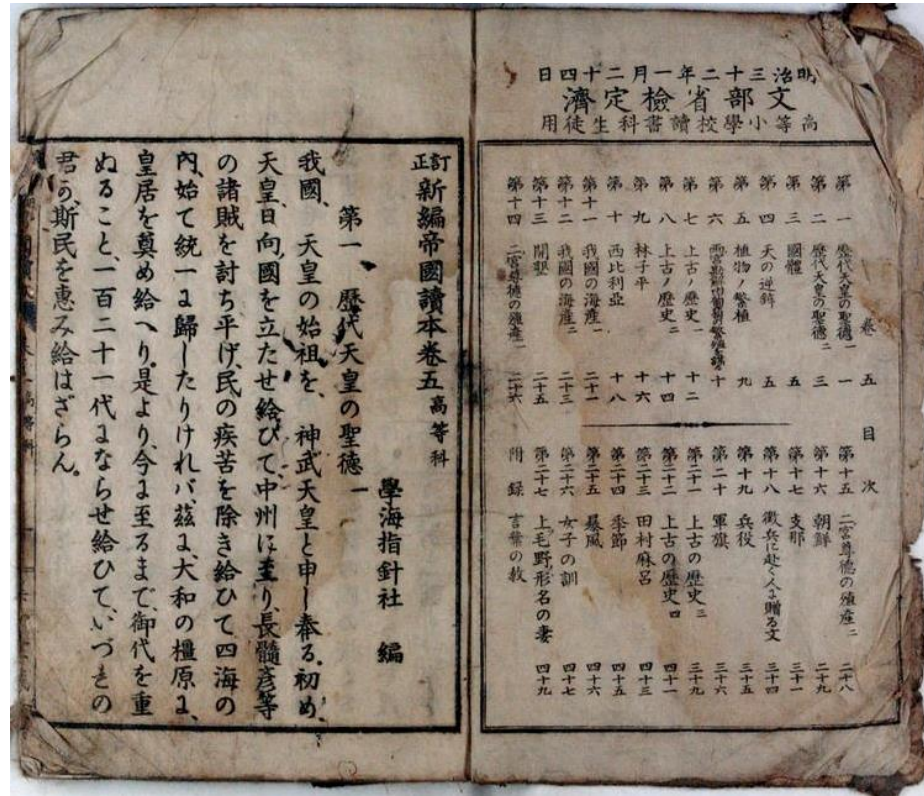 明治三十二年一月二十四日
文部省檢定濟
高等小學校讀書科生徒用
卷五 目次
第一 歷代天皇の聖德一 一
第二 歷代天皇の聖德二 三
第三 國體 五
第四 天の逆鉾 五
第五 植物ノ繁植 九
第六 十
第七 上古ノ歷史一 十二
第八 上古ノ歷史二 十四
第九 林子平 十六
第十 西比利亞 十八
第十一 我國の海産一 二十一
第十二 我國の海産二 二十三
第十三 開墾 二十五
第十四 二宮尊德の殖産一 二十六
第十五 二宮尊德の殖産二 二十八
第十六 朝鮮 二十九
第十七 支那 三十一
第十八 徵兵に赴く人に贈る文 三十四
第十九 兵役 三十五
第二十 軍旗 三十六
第二十一 上古の歷史三 三十九
第二十二 上古の歷史四 四十一
第二十三 田村麻呂 四十三
第二十四 季節 四十五
第二十五 暴風 四十六
第二十六 女子の訓 四十七
第二十七 上毛野形名の妻 四十九
附錄 言葉の敎 四十九
訂正 新編帝國讀本卷五 高等科
學海指針社 編
第一、歷代天皇の聖德一
我國、天皇の始祖を、神武天皇と申し奉る。初め、
天皇、日向國を立たせ給ひて、中州に至り、長髓彥等
の諸賊を討ち平げ、民の疾苦を除き給ひて四海の
內、始て統一に歸したりけれバ、茲に、大和の橿原に、
皇居を奠め給へり。是より、今に至るまで、御代を重
ぬること、一百二十一代にならせ給ひて、いづれの
君か、斯民を惠み給はざらん。